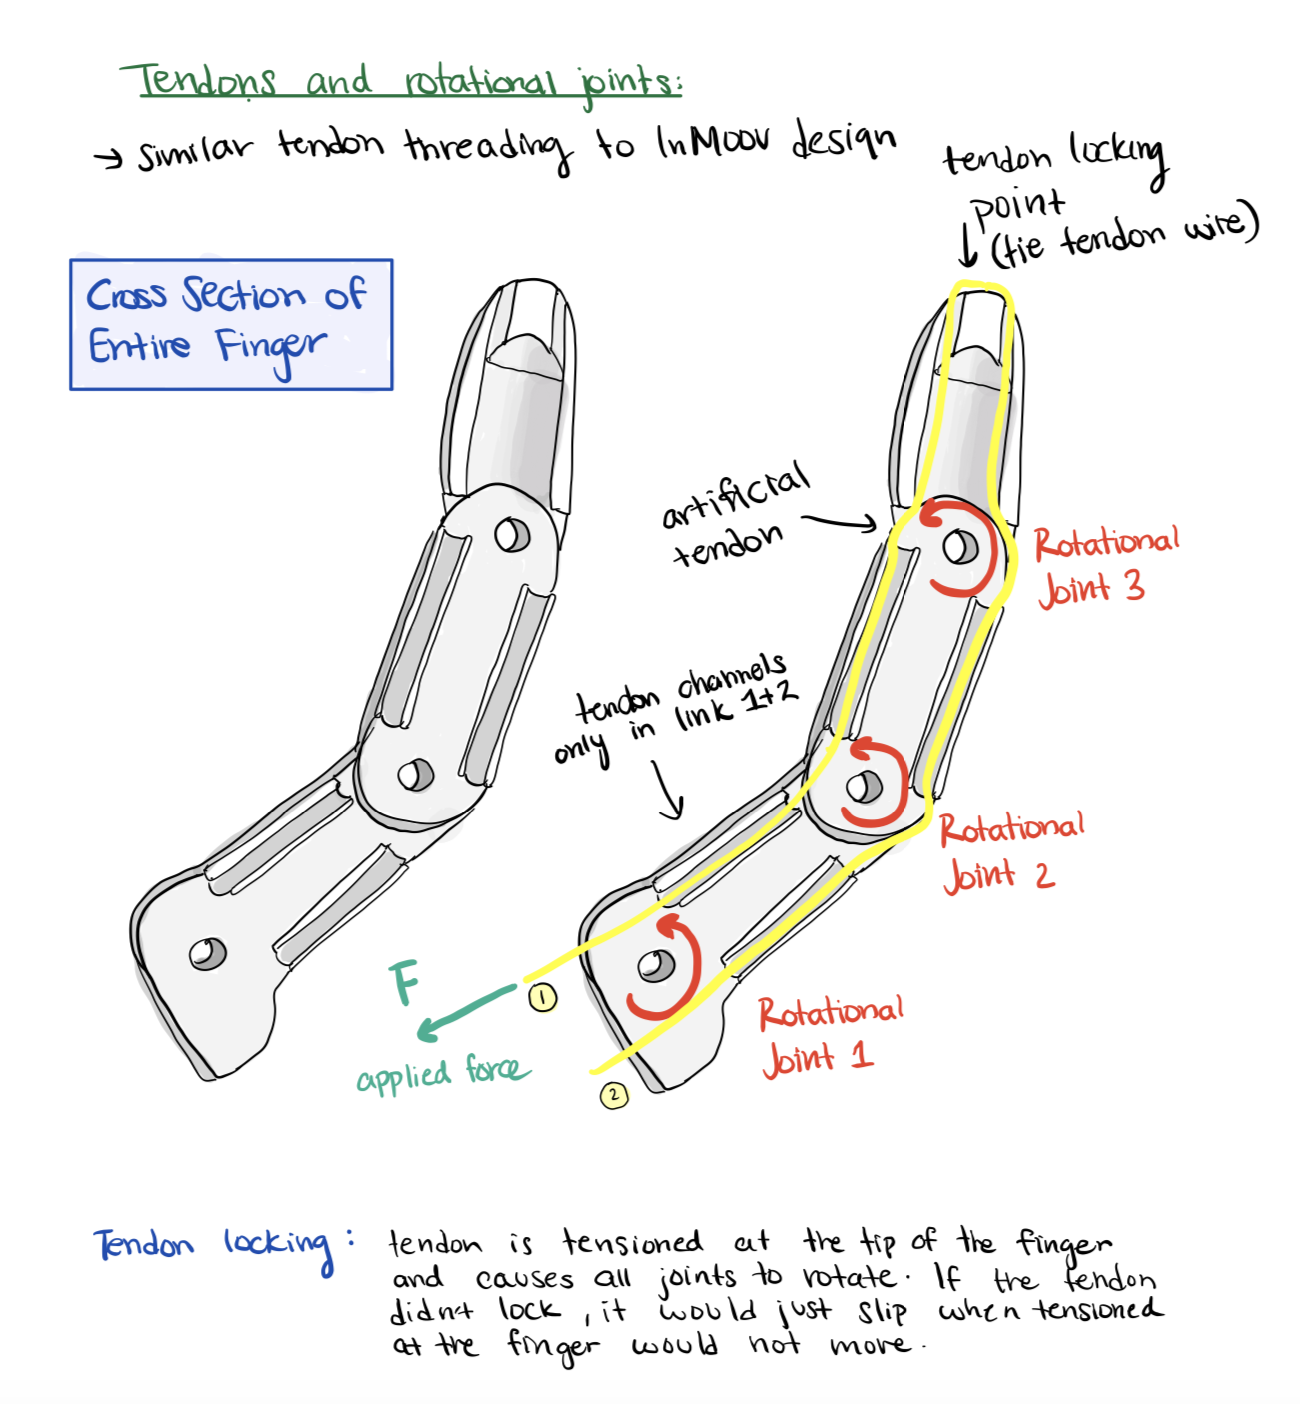 Tendons and rotational joints:
→ similar tendon threading to InMoov design
tendon locking
point
(tie tendon wire)
Cross Section of
Entire Finger
artificial
tendon
Rotational
Joint 3
tendon channels
only in link 1+2
Rotational
Joint 2
F
applied force
1
2
Rotational
Joint 1
Tendon locking: tendon is tensioned at the tip of the finger
and causes all joints to rotate. If the tendon
didn't lock, it would just slip when tensioned
at the finger would not move.